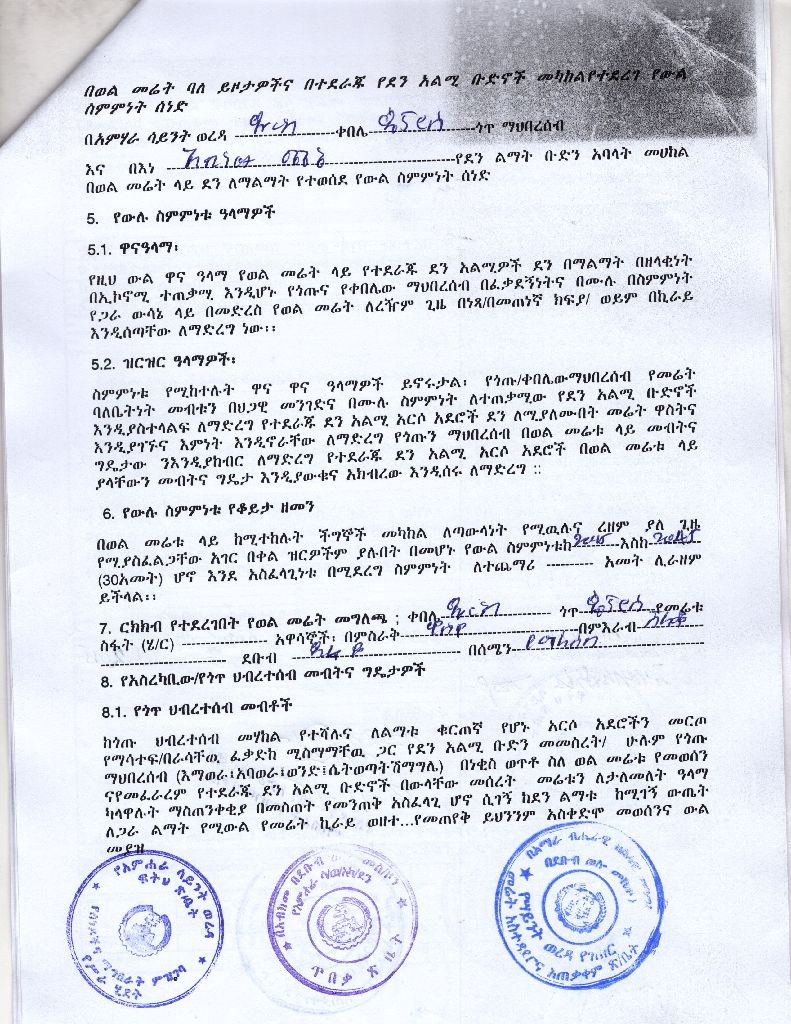 በወል መሬት ባለ ይዞታዎችና በተደራጁ የደን አልሚ ቡድኖች መካከልየተደረገ የውል
ስምምነት ሰነድ
በአምሃራ ሳይንት ወረዳ ቀበሌ ጎጥ ማህበረሰብ
እና በእነ የደን ልማት ቡድን አባላት መሀከል
በወል መሬት ላይ ደን ለማልማት የተወሰደ የውል ስምምነት ሰነድ
5. የውሉ ስምምነቱ ዓላማዎች
5.1. ዋናዓላማ፡
የዚህ ውል ዋና ዓላማ የወል መሬት ላይ የተደራጁ ደን አልሚዎች ደን በማልማት በዘላቂነት
በኢኮኖሚ ተጠቃሚ እንዲሆኑ የጎጡና የቀበሌው ማህበረሰብ በፈቃደኝነትና በሙሉ በስምምነት
የጋራ ውሳኔ ላይ በመድረስ የወል መሬት ለረዥም ጊዜ በነጻ/በመጠነኛ ክፍያ/ ወይም በኪራይ
እንዲሰጣቸው ለማድረግ ነው፡፡
5.2. ዝርዝር ዓላማዎች፡
ስምምነቱ የሚከተሉት ዋና ዋና ዓላማዎች ይኖሩታል፡ የጎጡ/ቀበሌውማህበረሰብ የመሬት
ባለቤትነት መብቱን በህጋዊ መንገድና በሙሉ ስምምነት ለተጠቃሚው የደን አልሚ ቡድኖች
እንዲያስተላልፍ ለማድረግ የተደራጁ ደን አልሚ አርሶ አደሮች ደን ለሚያለሙበት መሬት ዋስትና
እንዲያገኙና እምነት እንዲኖራቸው ለማድረግ የጎጡን ማህበረሰብ በወል መሬቱ ላይ መብትና
ግዴታው ንእንዲያከብር ለማድረግ የተደራጁ ደን አልሚ አርሶ አደሮች በወል መሬቱ ላይ
ያላቸውን መብትና ግዴታ እንዲያውቁና አክብረው እንዲሰሩ ለማድረግ ::
6. የውሉ ስምምነቱ የቆይታ ዘመን
በወል መሬቱ ላይ ከሚተከሉት ችግኞች መካከል ለጣውላነት የሚዉሉና ረዘም ያለ ጊዜ
የሚያስፈልጋቸው አገር በቀል ዝርዎችም ያሉበት በመሆኑ የውል ስምምነቱከ 2015 እስከ 2045
(30አመት) ሆኖ እንደ አስፈላጊነቱ በሚደረግ ስምምነት ለተጨማሪ ---------- አመት ሊራዘም
ይችላል፡፡
7. ርክክብ የተደረገበት የወል መሬት መግለጫ ; ቀበሌ ጎጥ የመሬቱ
ስፋት (ሄ/ር) ----------------- አዋሳኞች፡ በምስራቅ በምእራብ
ደቡብ በሰሜን
8. የአስረካቢው/የጎጥ ህብረተሰብ መብትና ግዴታዎች
8.1. የጎጥ ህብረተሰብ መብቶች
ከጎጡ ህብረተሰብ መሃከል የተሻሉና ለልማቱ ቁርጠኛ የሆኑ አርሶ አደሮችን መርጦ
የማሳተፍ/በራሳቸዉ ፈቃድከ ሚስማማቸዉ ጋር የደን አልሚ ቡድን መመስረት/ ሁሉም የጎጡ
ማህበረሰብ (እማወራ፤አባወራ፤ወንድ፤ሴትወጣት፣ሽማግሌ) በነቂስ ወጥቶ ስለ ወል መሬቱ የመወሰን
ናየመፈራረም የተደራጁ ደን አልሚ ቡድኖች በውላቸው መሰረት መሬቱን ለታለመለት ዓላማ
ካላዋሉት ማስጠንቀቂያ በመስጠት የመንጠቅ አስፈላጊ ሆኖ ሲገኝ ከደን ልማቱ ከሚገኝ ውጤት
ለጋራ ልማት የሚውል የመሬት ኪራይ ወዘተ...የመጠየቅ ይህንንም አስቀድሞ መወሰንና ውል
መያዝ
የአምሐራ ሳይንት ወረዳ
ፍትህ ጽ/ቤት
ጥበቃ ጽ/ቤት